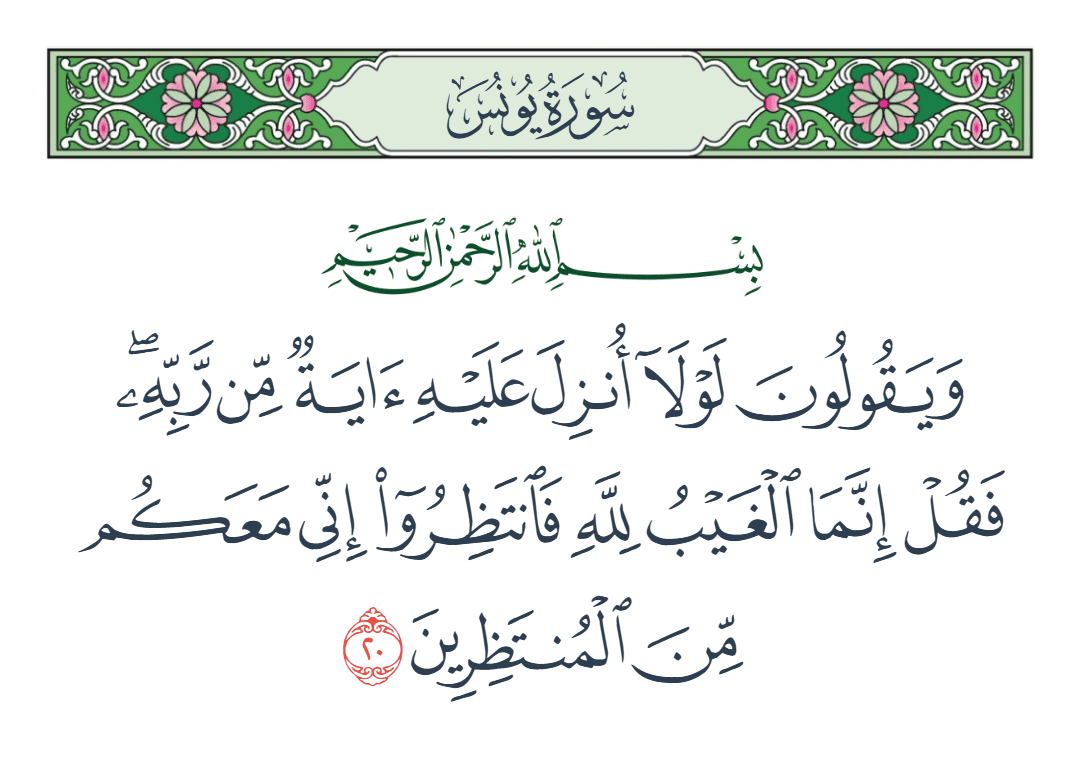 سُورَةُ يُونُسَ
بِسْمِ ٱللَّهِ ٱلرَّحْمَٰنِ ٱلرَّحِيمِ
وَيَقُولُونَ لَوْلَآ أُنزِلَ عَلَيْهِ ءَايَةٌ مِّن رَّبِّهِۦۖ
فَقُلْ إِنَّمَا ٱلْغَيْبُ لِلَّهِ فَٱنتَظِرُوٓا۟ إِنِّى مَعَكُم
مِّنَ ٱلْمُنتَظِرِينَ ٢٠